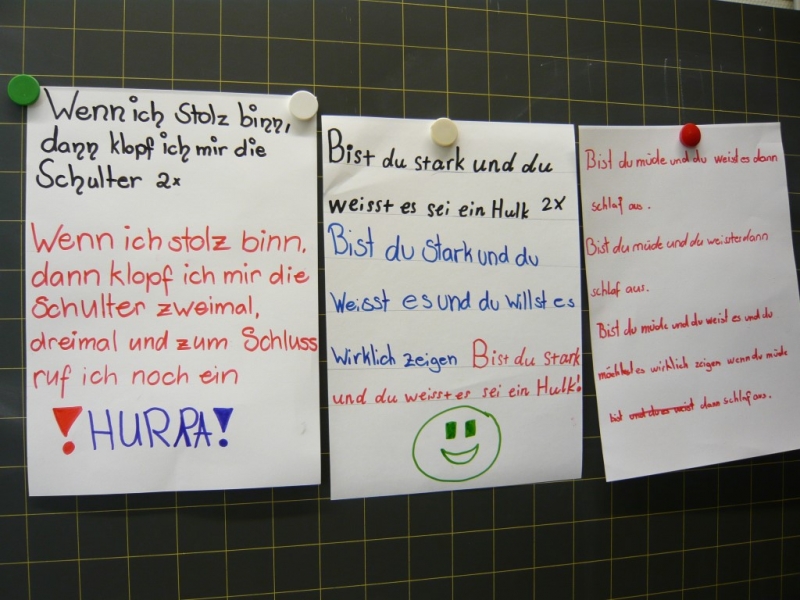 Wenn ich Stolz binn,
dann klopf ich mir die
Schulter 2x
Wenn ich stolz binn,
dann klopf ich mir die
Schulter zweimal,
dreimal und zum Schluss
ruf ich noch ein
! HURRA!
Bist du stark und du
weisst es sei ein Hulk 2x
Bist du Stark und du
Weisst es und du willst es
Wirklich zeigen Bist du stark
und du weisst es sei ein Hulk!
Bist du müde und du weist es dann
schlaf aus.
Bist du müde und du weisst dann
schlaf aus.
Bist du müde und du weist es und du
möchtest es wirklich zeigen wenn du müde
bist und du es weist dann schlaf aus.